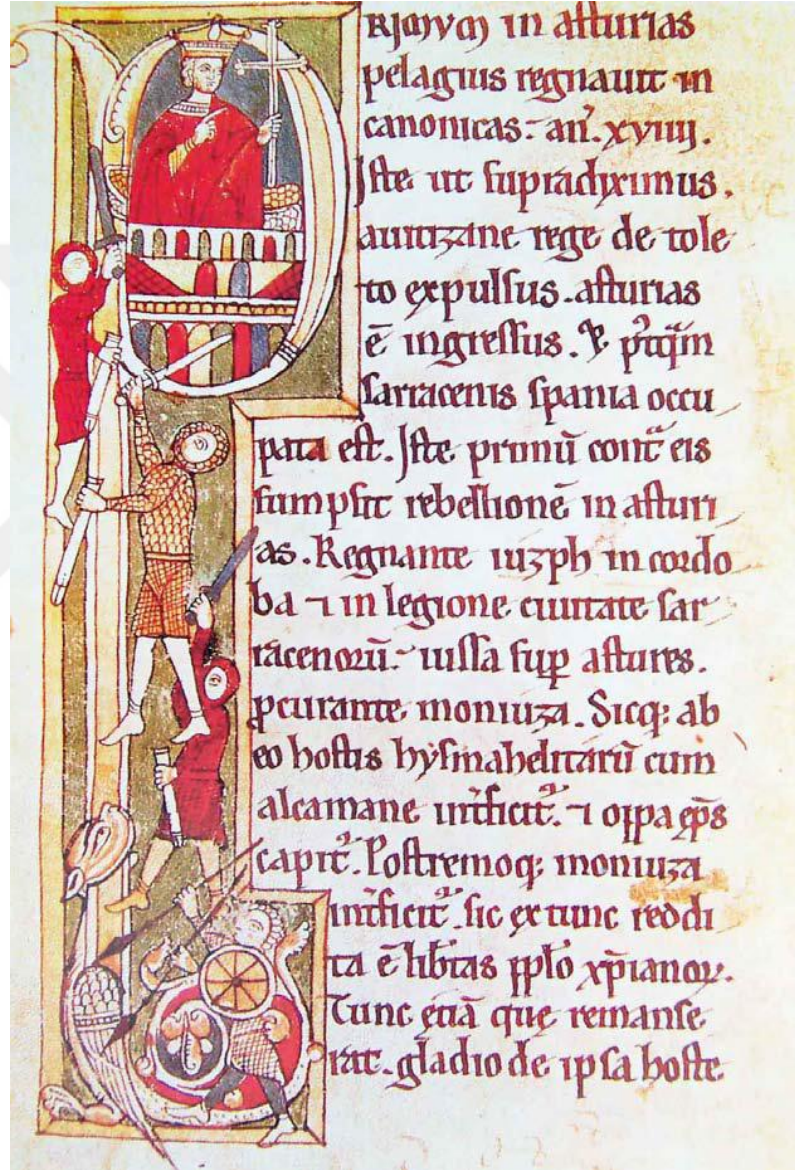 PRIMVM in asturias
pelagius regnauit in
canonicas. an̄. xviiij.
Iste ut supradiximus.
auuizane rege de tole
to expulsus. asturias
ē ingressus. & p̃tq̃m
sarracenis spania occu
pata est. Iste primū cont̃ eis
sumpsit rebellionē in asturi
as. Regnante iuzph in cordo
ba ⁊ in legione ciuitate sar
racenorū. iussa sup̱ astures.
ꝓcurante moniuza. Sicq; ab
eo hostis hysmahelitarū cum
alcamane int̃ficit᷑. ⁊ oppa ep̄s
capit᷑. Postremoq; moniuza
int̃ficit᷑. sic ex tunc reddi
ta ē lib̃tas ppło xp̄ianoꝝ.
Tunc etiā que remanse
rat. gladio de ipsa hoste